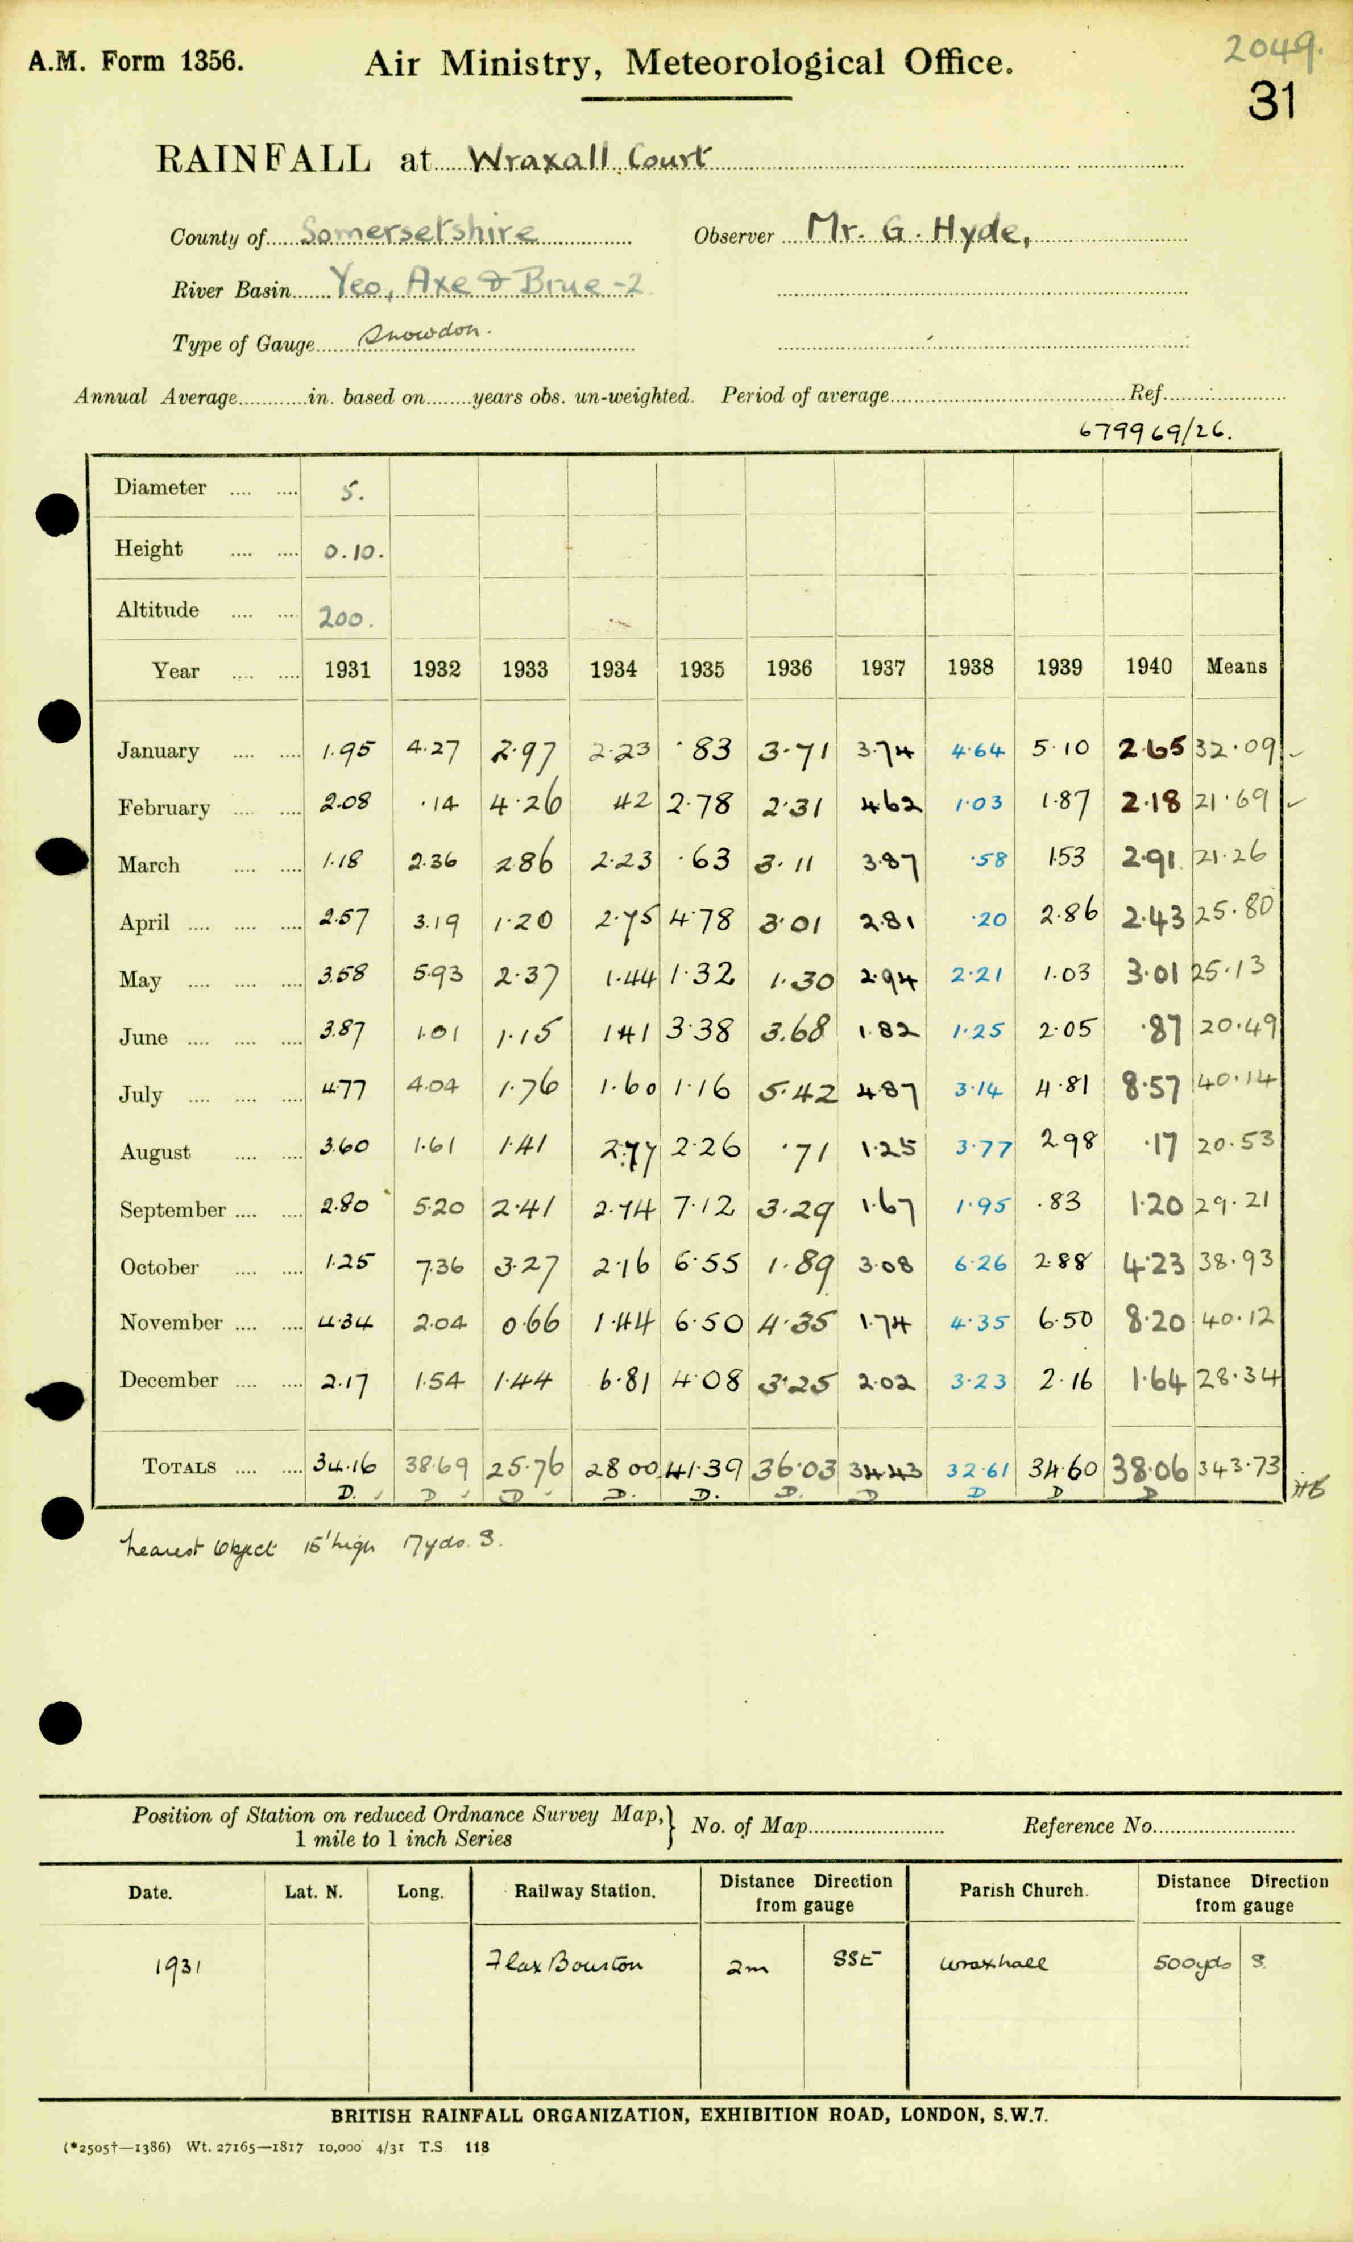 2049.
A.M. Form 1356. Air Ministry, Meteorological Office.
31
RAINFALL at Wraxall Court
County of Somersetshire Observer Mr. G. Hyde,
River Basin Yeo, Axe & Brue -2
Type of Gauge Snowdon.
Annual Average in. based on years obs. un-weighted. Period of average Ref.
679969/26.
Diameter 5.
Height 0.10.
Altitude 200.
Year 1931 1932 1933 1934 1935 1936 1937 1938 1939 1940 Means
January 1.95 4.27 2.97 2.23 .83 3.71 3.74 4.64 5.10 2.65 32.09
February 2.08 .14 4.26 42 2.78 2.31 4.62 1.03 1.87 2.18 21.69
March 1.18 2.36 2.86 2.23 .63 3.11 3.87 .58 1.53 2.91 21.26
April 2.57 3.19 1.20 2.75 4.78 3.01 2.81 .20 2.86 2.43 25.80
May 3.58 5.93 2.37 1.44 1.32 1.30 2.94 2.21 1.03 3.01 25.13
June 3.87 1.01 1.15 1.41 3.38 3.68 1.82 1.25 2.05 .87 20.49
July 4.77 4.04 1.76 1.60 1.16 5.42 4.87 3.14 4.81 8.57 40.14
August 3.60 1.61 1.41 2.77 2.26 .71 1.25 3.77 2.98 .17 20.53
September 2.80 5.20 2.41 2.74 7.12 3.29 1.67 1.95 .83 1.20 29.21
October 1.25 7.36 3.27 2.16 6.55 1.89 3.08 6.26 2.88 4.23 38.93
November 4.34 2.04 0.66 1.44 6.50 4.35 1.74 4.35 6.50 8.20 40.12
December 2.17 1.54 1.44 6.81 4.08 3.25 2.02 3.23 2.16 1.64 28.34
TOTALS 34.16 38.69 25.76 28.00 41.39 36.03 34.43 32.61 34.60 38.06 343.73
D. D D D. D. D. D D D D
nearest object 15' high 17yds. S.
Position of Station on reduced Ordnance Survey Map, 1 mile to 1 inch Series No. of Map Reference No.
Date. Lat. N. Long. Railway Station. Distance Direction from gauge Parish Church. Distance Direction from gauge
1931 Flax Bourton 2m SSE Wraxhall 500yds S.
BRITISH RAINFALL ORGANIZATION, EXHIBITION ROAD, LONDON, S.W.7.
(*2505†—1386) Wt. 27165—1817 10,000 4/31 T.S 118